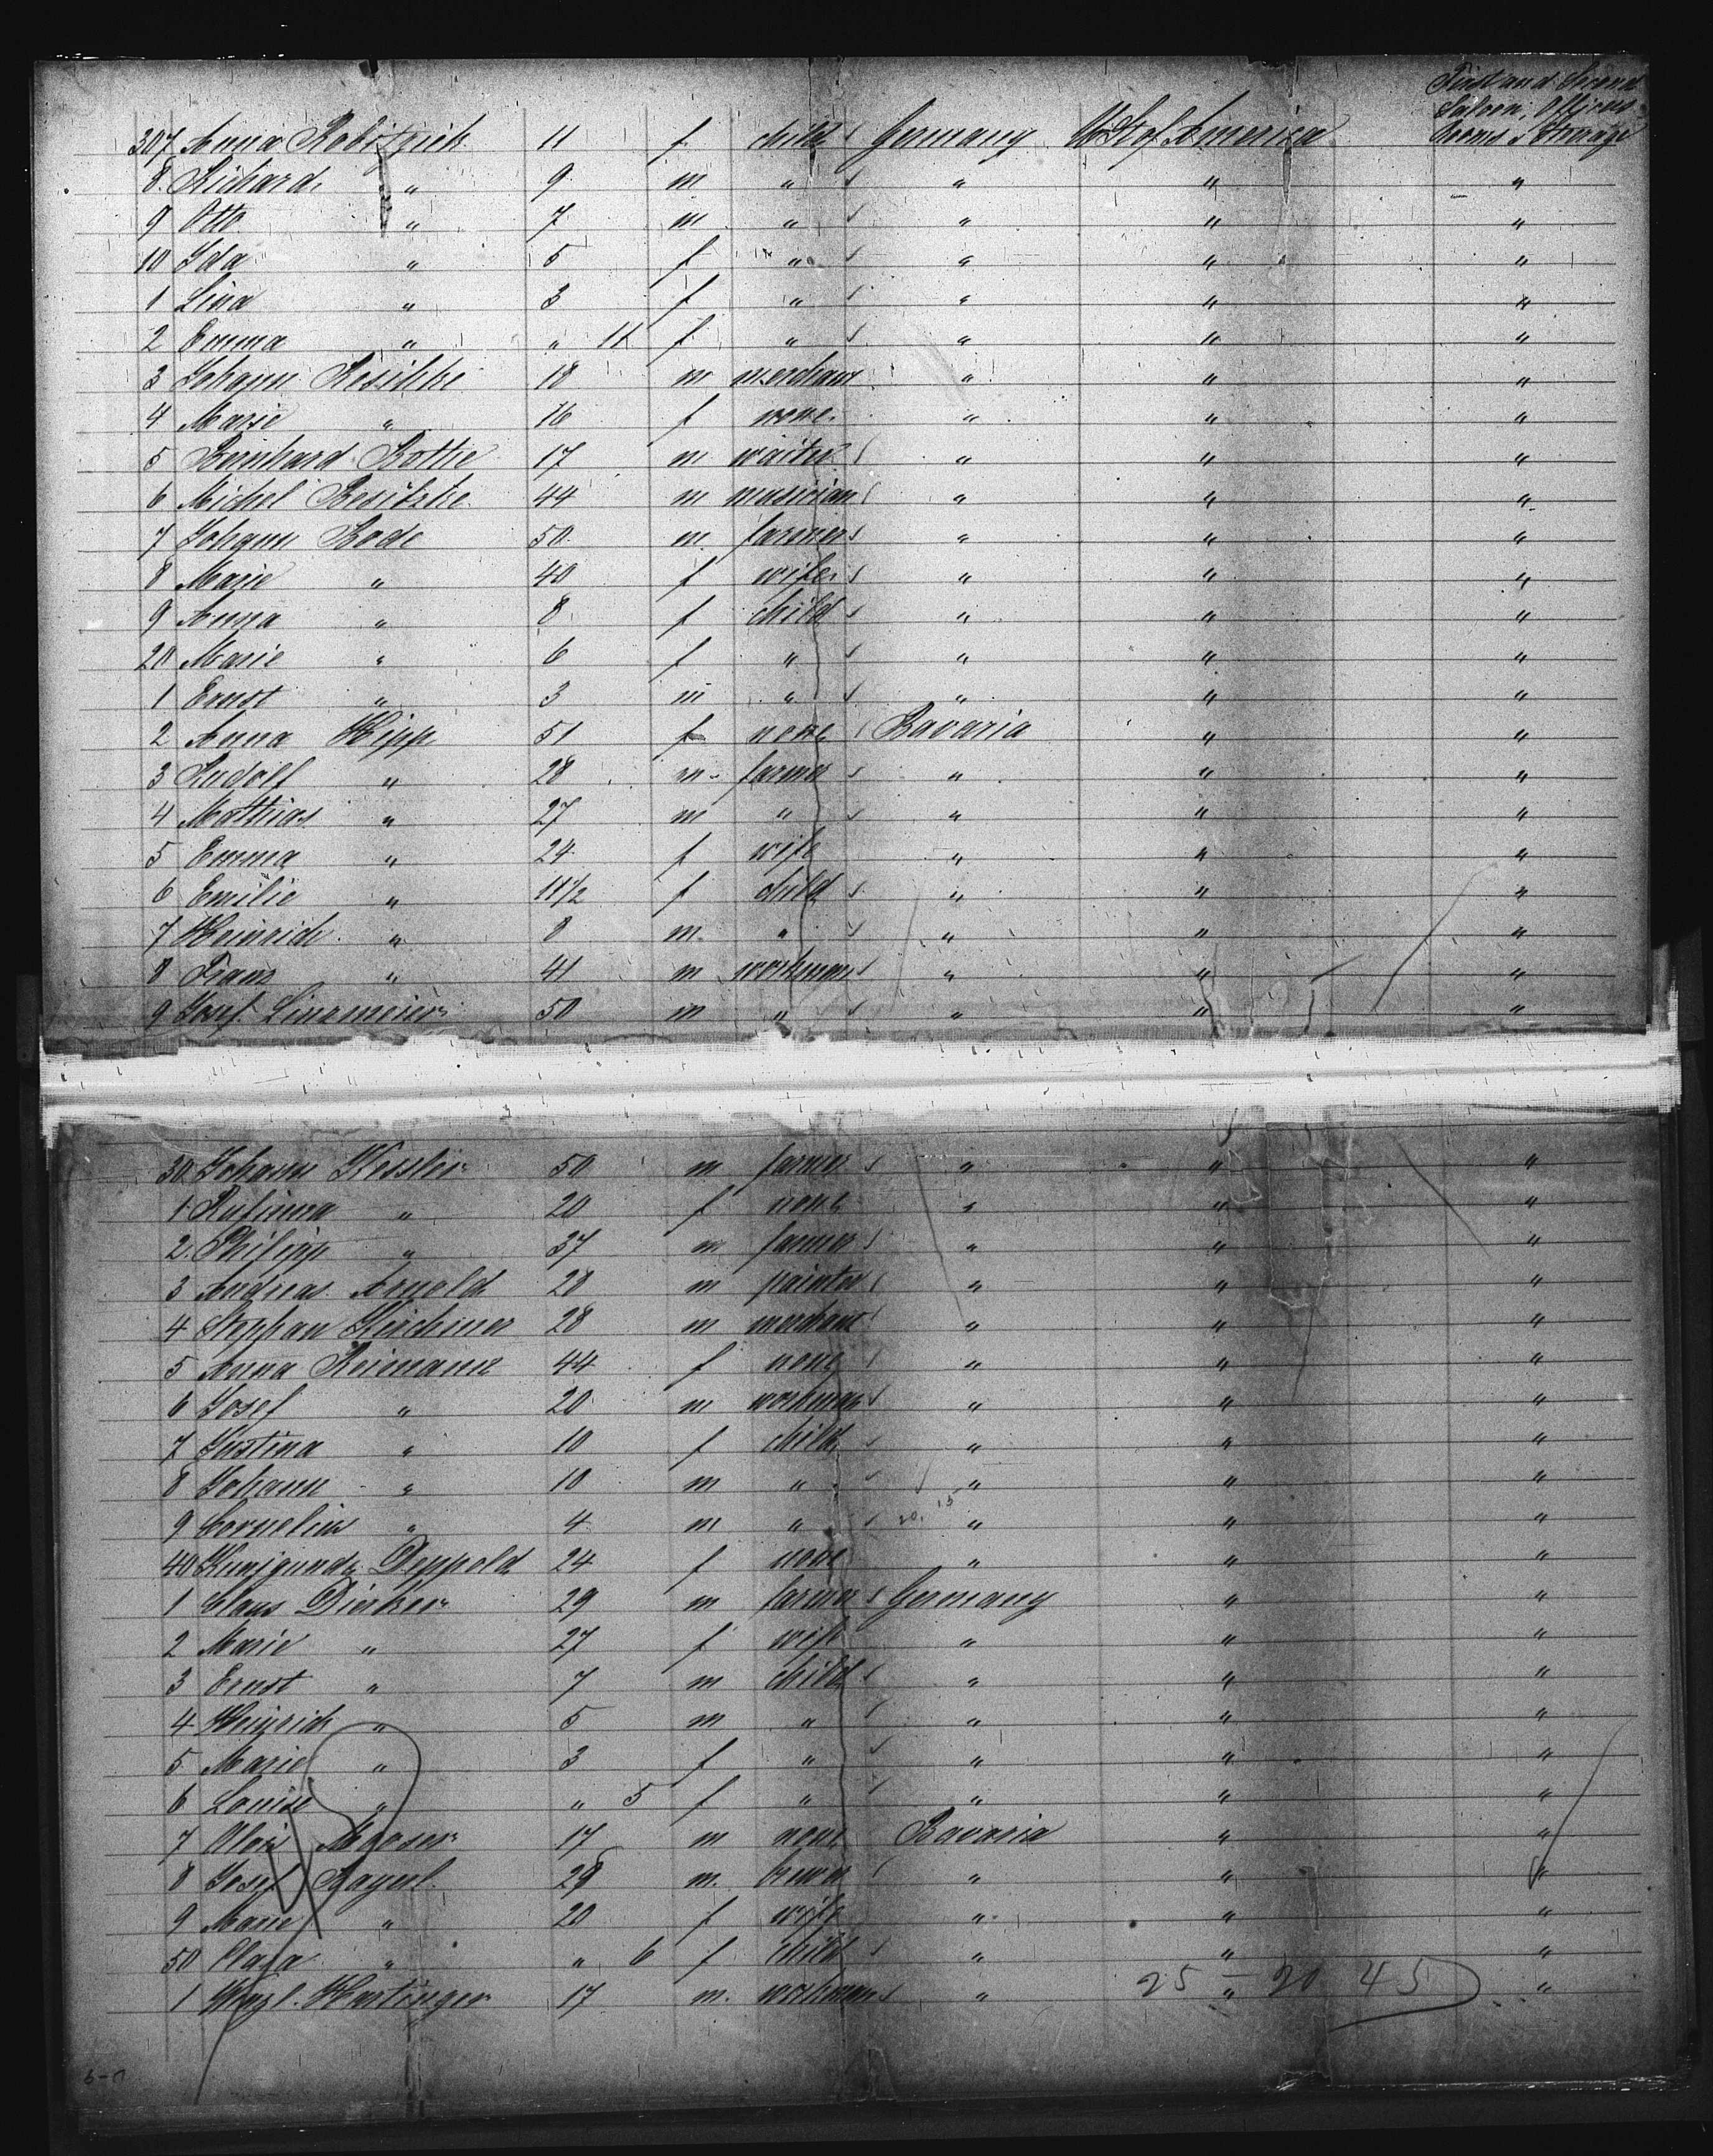 First and Second
Saloon, Officers
307 Anna 11 f child Germany U St of America Rooms Storage
8 Richard " 9 m " " " "
9 Otto " 7 m " " " "
10 Ida " 5 f " " " "
1 Lina " 3 f " " " "
2 Emma " " 11 f " " " "
3 Johann 18 m merchant " " "
4 Marie " 16 f none " " "
5 Bernhard Bothe 17 m waiter " " "
6 Michel 44 m musician " " "
7 Johann Bode 50 m farmer " " "
8 Marie " 40 f wife " " "
9 Anna " 8 f child " " "
20 Marie " 6 f " " " "
1 Ernst " 3 m " " " "
2 Anna Hipp 51 f none Bavaria " "
3 Rudolf " 28 m farmer " " "
4 Mathias " 27 m " " " "
5 Emma " 24 f wife " " "
6 Emilie " 11 1/2 f child " " "
7 Heinrich " 8 m " " " "
8 Franz " 41 m workman " " "
9 Josef Linsmeier 50 m " " " "
30 Johann Kessler 50 m farmer " " "
1 " 20 f none " " "
2 Philipp " 37 m farmer " " "
3 Andreas Arnold 28 m painter " " "
4 Stephan Kirchner 28 m merchant " " "
5 Anna Reimann 44 f none " " "
6 Josef " 20 m workman " " "
7 Justina " 10 f child " " "
8 Johann " 10 m " " " "
9 Cornelius " 4 m " " " "
40 Kunigunde Deppold 24 f none " " "
1 Claus Dierker 29 m farmer Germany " "
2 Marie " 27 f wife " " "
3 Ernst " 7 m child " " "
4 Heinrich " 5 m " " " "
5 Marie " 3 f " " " "
6 Louise " " 5 f " " " "
7 Alois Mooser 17 m none Bavaria " "
8 Josef Bayerl 29 m brewer " " "
9 Marie " 20 f wife " " "
50 Clara " " 6 f child " " "
1 Hartinger 17 m workman " " "
25 - 20 45